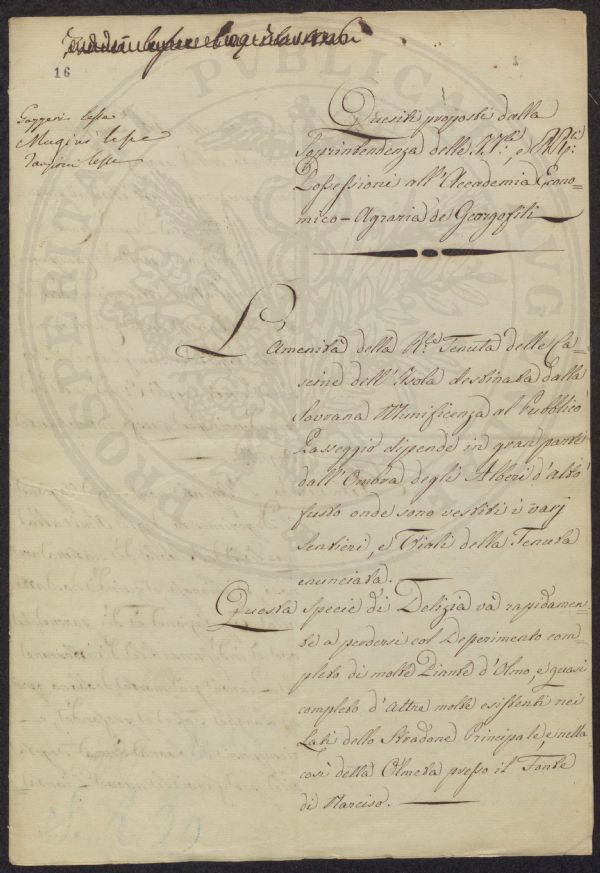 16
1
Gazzeri lesse
Magini lesse
Taverni lesse
Quesiti proposti dalla
Soprintendenza delle I.I.li, e RR.li
Possessioni all'Accademia Econo-
mico-Agraria de Georgofili
L'amenità della R.le Tenuta delle Ca-
scine dell'Isola destinata dalla
Sovrana Munificenza al Pubblico
Passeggio dipende in gran parte
dall'Ombra degli Alberi d'alto
fusto onde sono vestiti i varj
Sentieri, e Viali della Tenuta
enunciata.
Questa specie di Delizia và rapidamen-
te a perdersi col Deperimento com-
pleto di molte Piante d'Olmo, e quasi
completo d'altre molte esistenti nei
Lati dello Stradone Principale, e nella
così detta Olmeta presso il Fonte
di Narciso.
PROSPERITATI PUBLICAE AUG